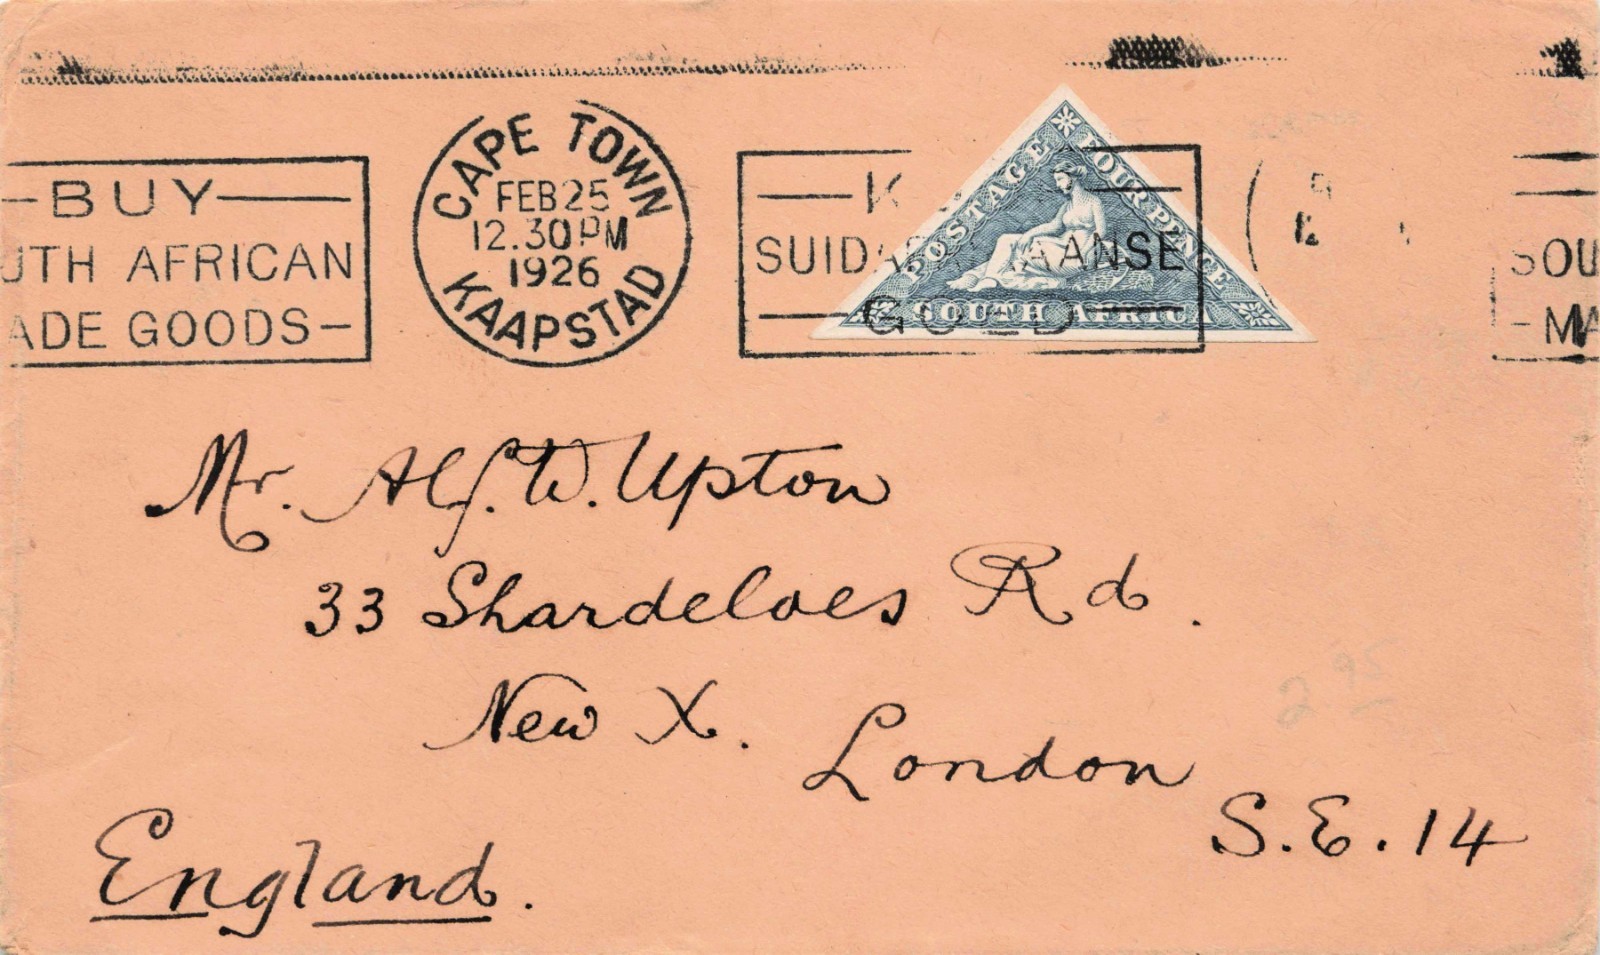 BUY
UTH AFRICAN
ADE GOODS
CAPE TOWN
FEB 25
12.30 PM
1926
KAAPSTAD
K
SUIDA AANSE
GOED
POSTAGE
FOUR PENCE
SOUTH AFRICA
SOU
MA
Mr. Alf. W. Upton
33 Shardeloes Rd.
New X.
London
S.E. 14
England.
2 95